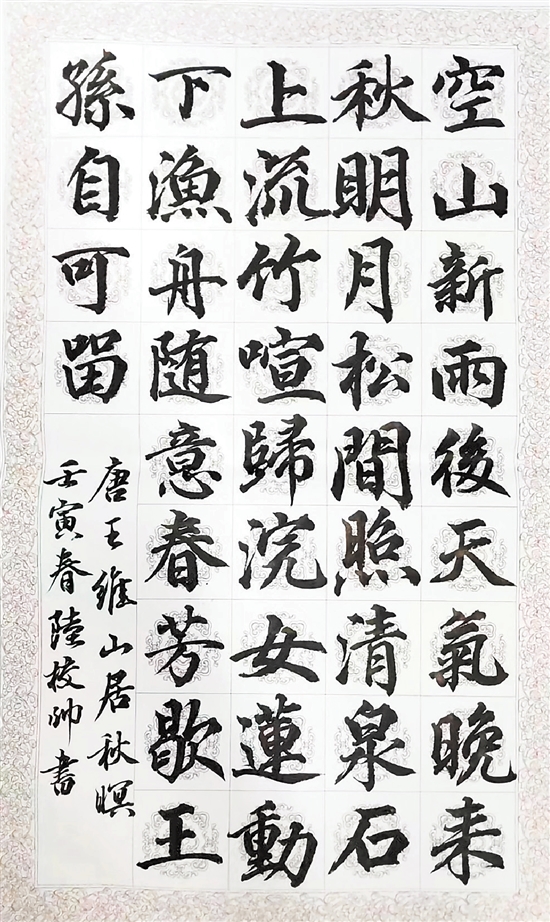 空山新雨後天氣晚来
秋明月松間照清泉石
上流竹喧歸浣女蓮動
下漁舟随意春芳歇王
孫自可留
唐王維山居秋暝
壬寅春陸校帥書